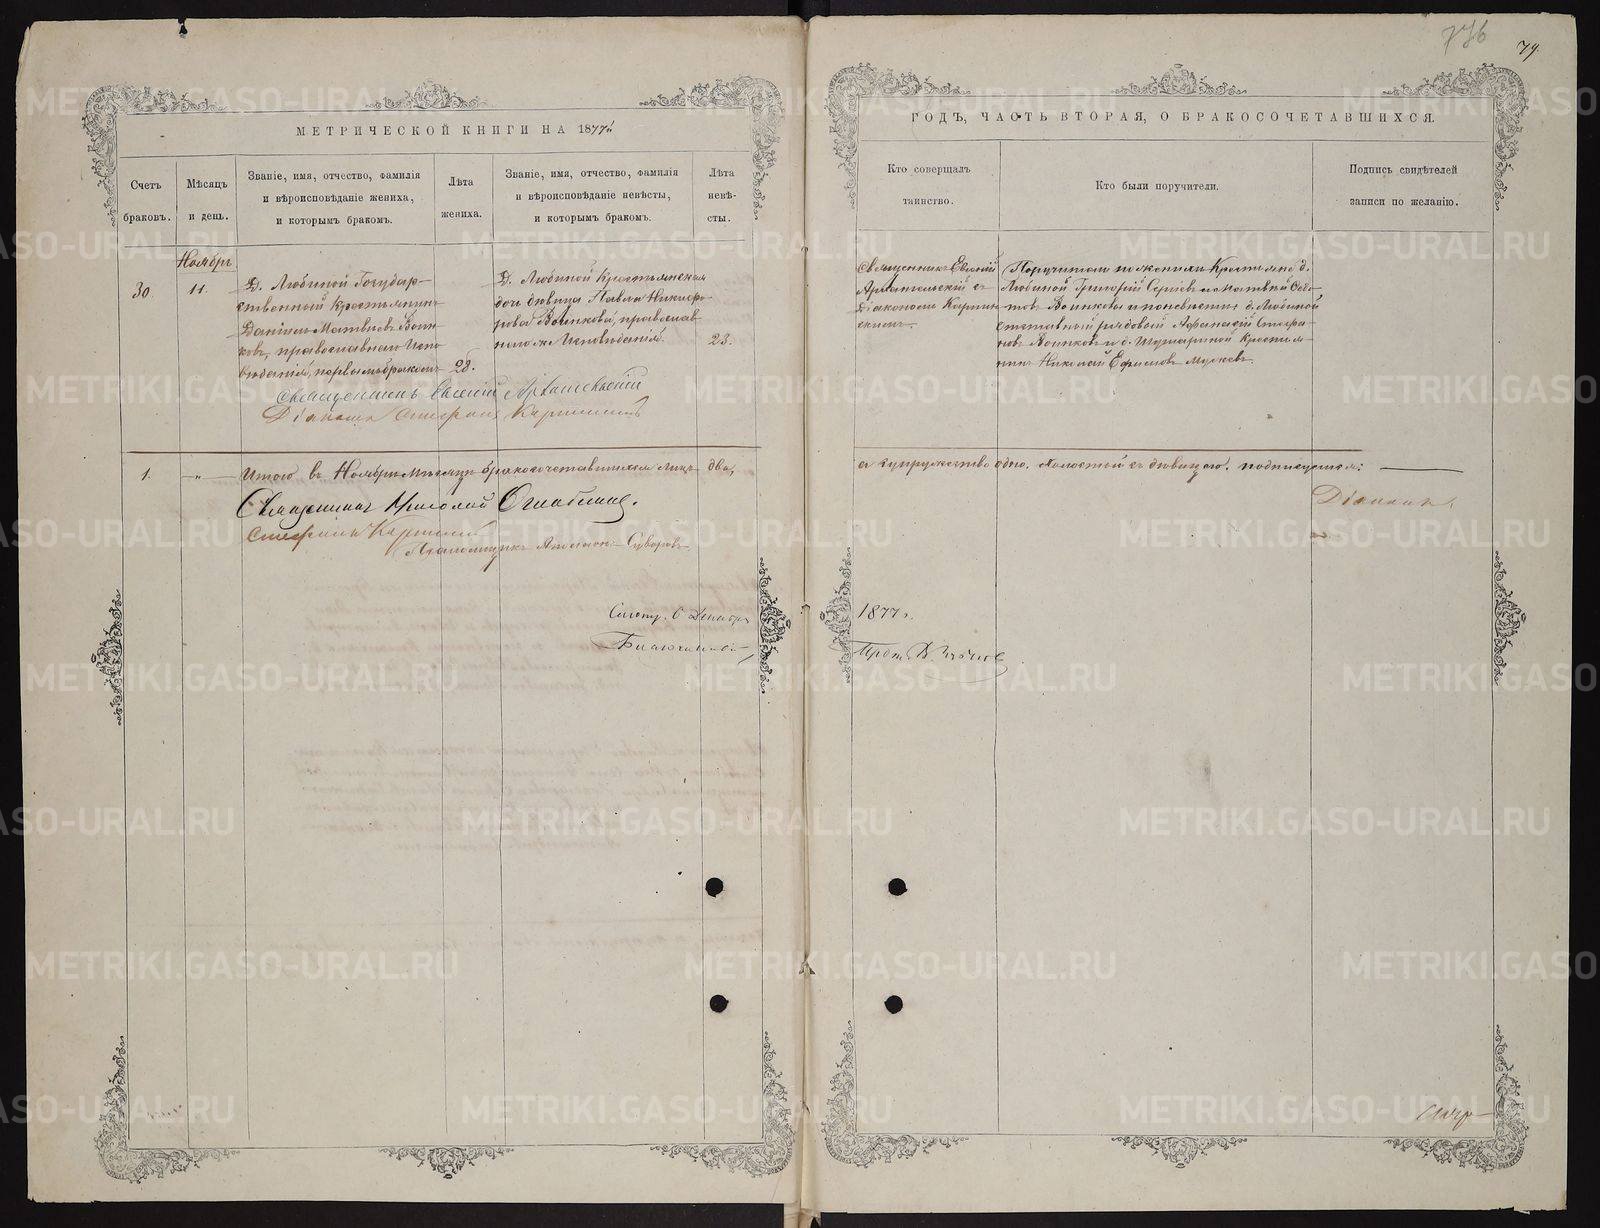 776
79.
МЕТРИЧЕСКОЙ КНИГИ НА 1877й
ГОДЪ, ЧАСТЬ ВТОРАЯ, О БРАКОСОЧЕТАВШИХСЯ.
Счетъ браковъ.
Мѣсяцъ и день.
Званіе, имя, отчество, фамилія
и вѣроисповѣданіе жениха,
и которымъ бракомъ.
Лѣта жениха.
Званіе, имя, отчество, фамилія
и вѣроисповѣданіе невѣсты,
и которымъ бракомъ.
Лѣта невѣ-
сты.
Кто совершалъ
таинство.
Кто были поручители.
Подпись свидѣтелей
записи по желанію.
Ноябрь
30.
11.
Д. Любиной Государ-
ственный крестьянинъ
Даніилъ Матвиевъ Воин-
ковъ, православнаго Испо-
вѣданія, первымъ бракомъ
28.
Д. Любиной Крестьянская
дочь дѣвица Павла Никифо-
рова Воинкова, православ-
наго же Исповѣданія.
23.
Священникъ Евгеній
Архангельскій съ
Діакономъ Карпин-
скимъ
Поручители по женихѣ Крестьяне д.
Любиной Григорій Сергіевъ и Матвѣй Ѳедо-
товъ Воинковы и по невѣстѣ д. Любиной
отставный рядовой Афанасій Стефа-
новъ Воинковъ и д. Крестья-
нинъ Николай Ефимовъ
Священникъ Евгеній Архангельскій
Діаконъ Стефанъ Карпинскій
1.
"
Итого въ Ноябрѣ Мѣсяцѣ бракосочетавшихся лицъ два,
а супружество одно. Холостый съ дѣвицею. подписуемся:
Священникъ Николай
Діаконъ
Стефанъ Карпинскій
Псаломщикъ Суворовъ
6 Декабря
1877 г.
METRIKI.GASO-URAL.RU